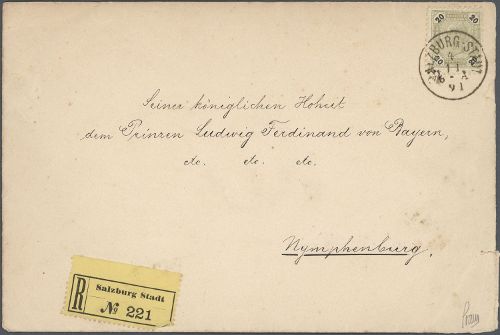 20 20
20 20
SALZBURG-STADT
4
11
91
Seiner königlichen Hoheit
dem Prinzen Ludwig Ferdinand von Bayern,
etc. etc. etc.
Nymphenburg.
R
Salzburg Stadt
№ 221